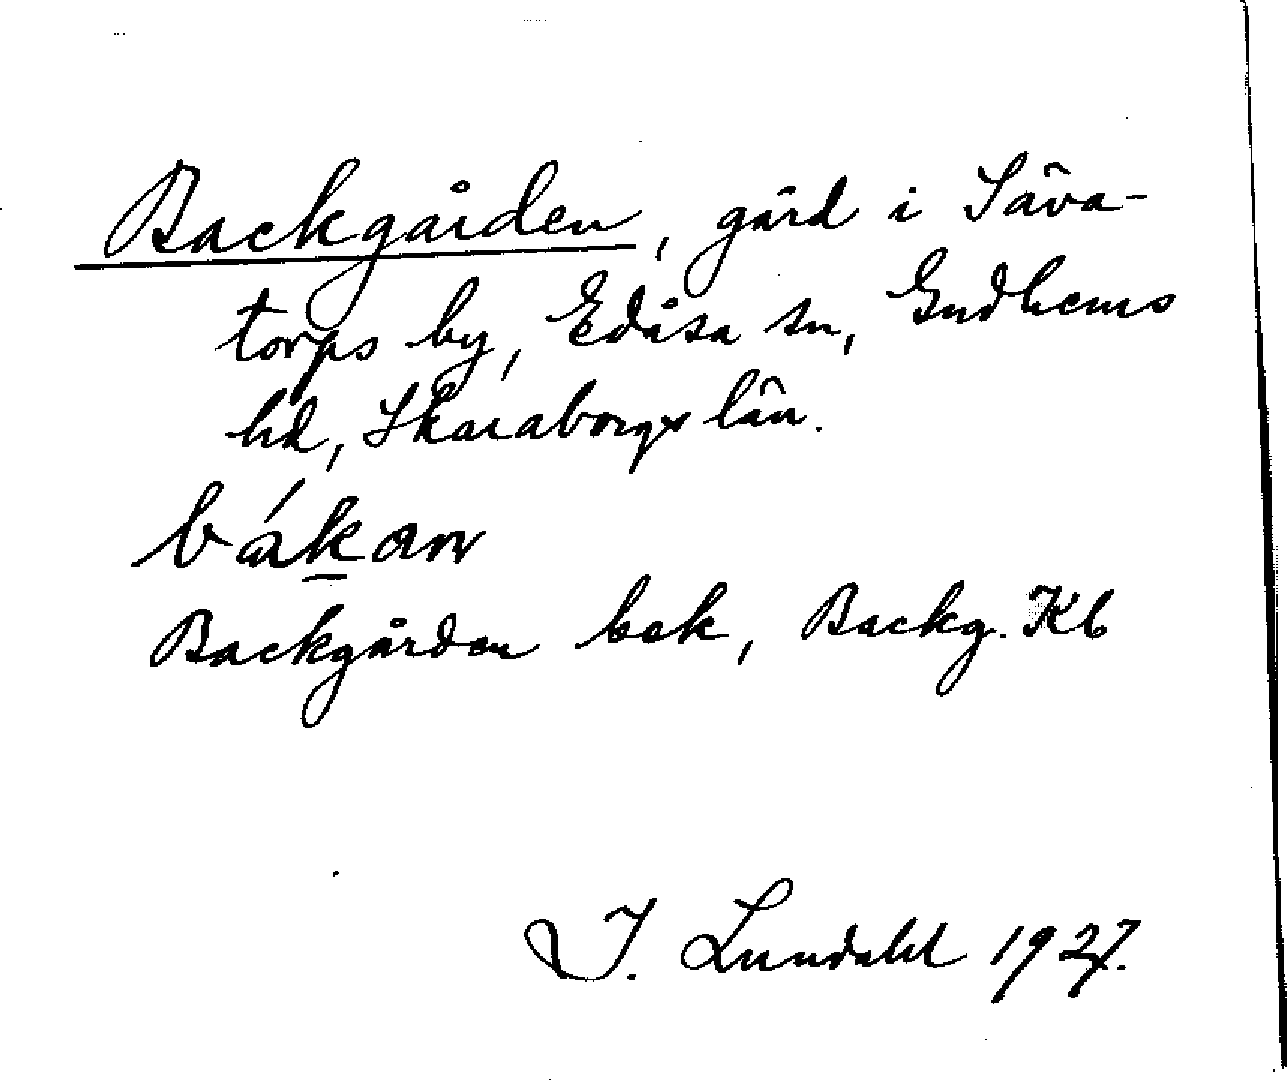 Backgården, gård i Säva-
torps by, Edåsa sn, Gudhems
hd, Skaraborgs län.
bákan
Backgården bek, Backg. Kb
I. Lundahl 1927.